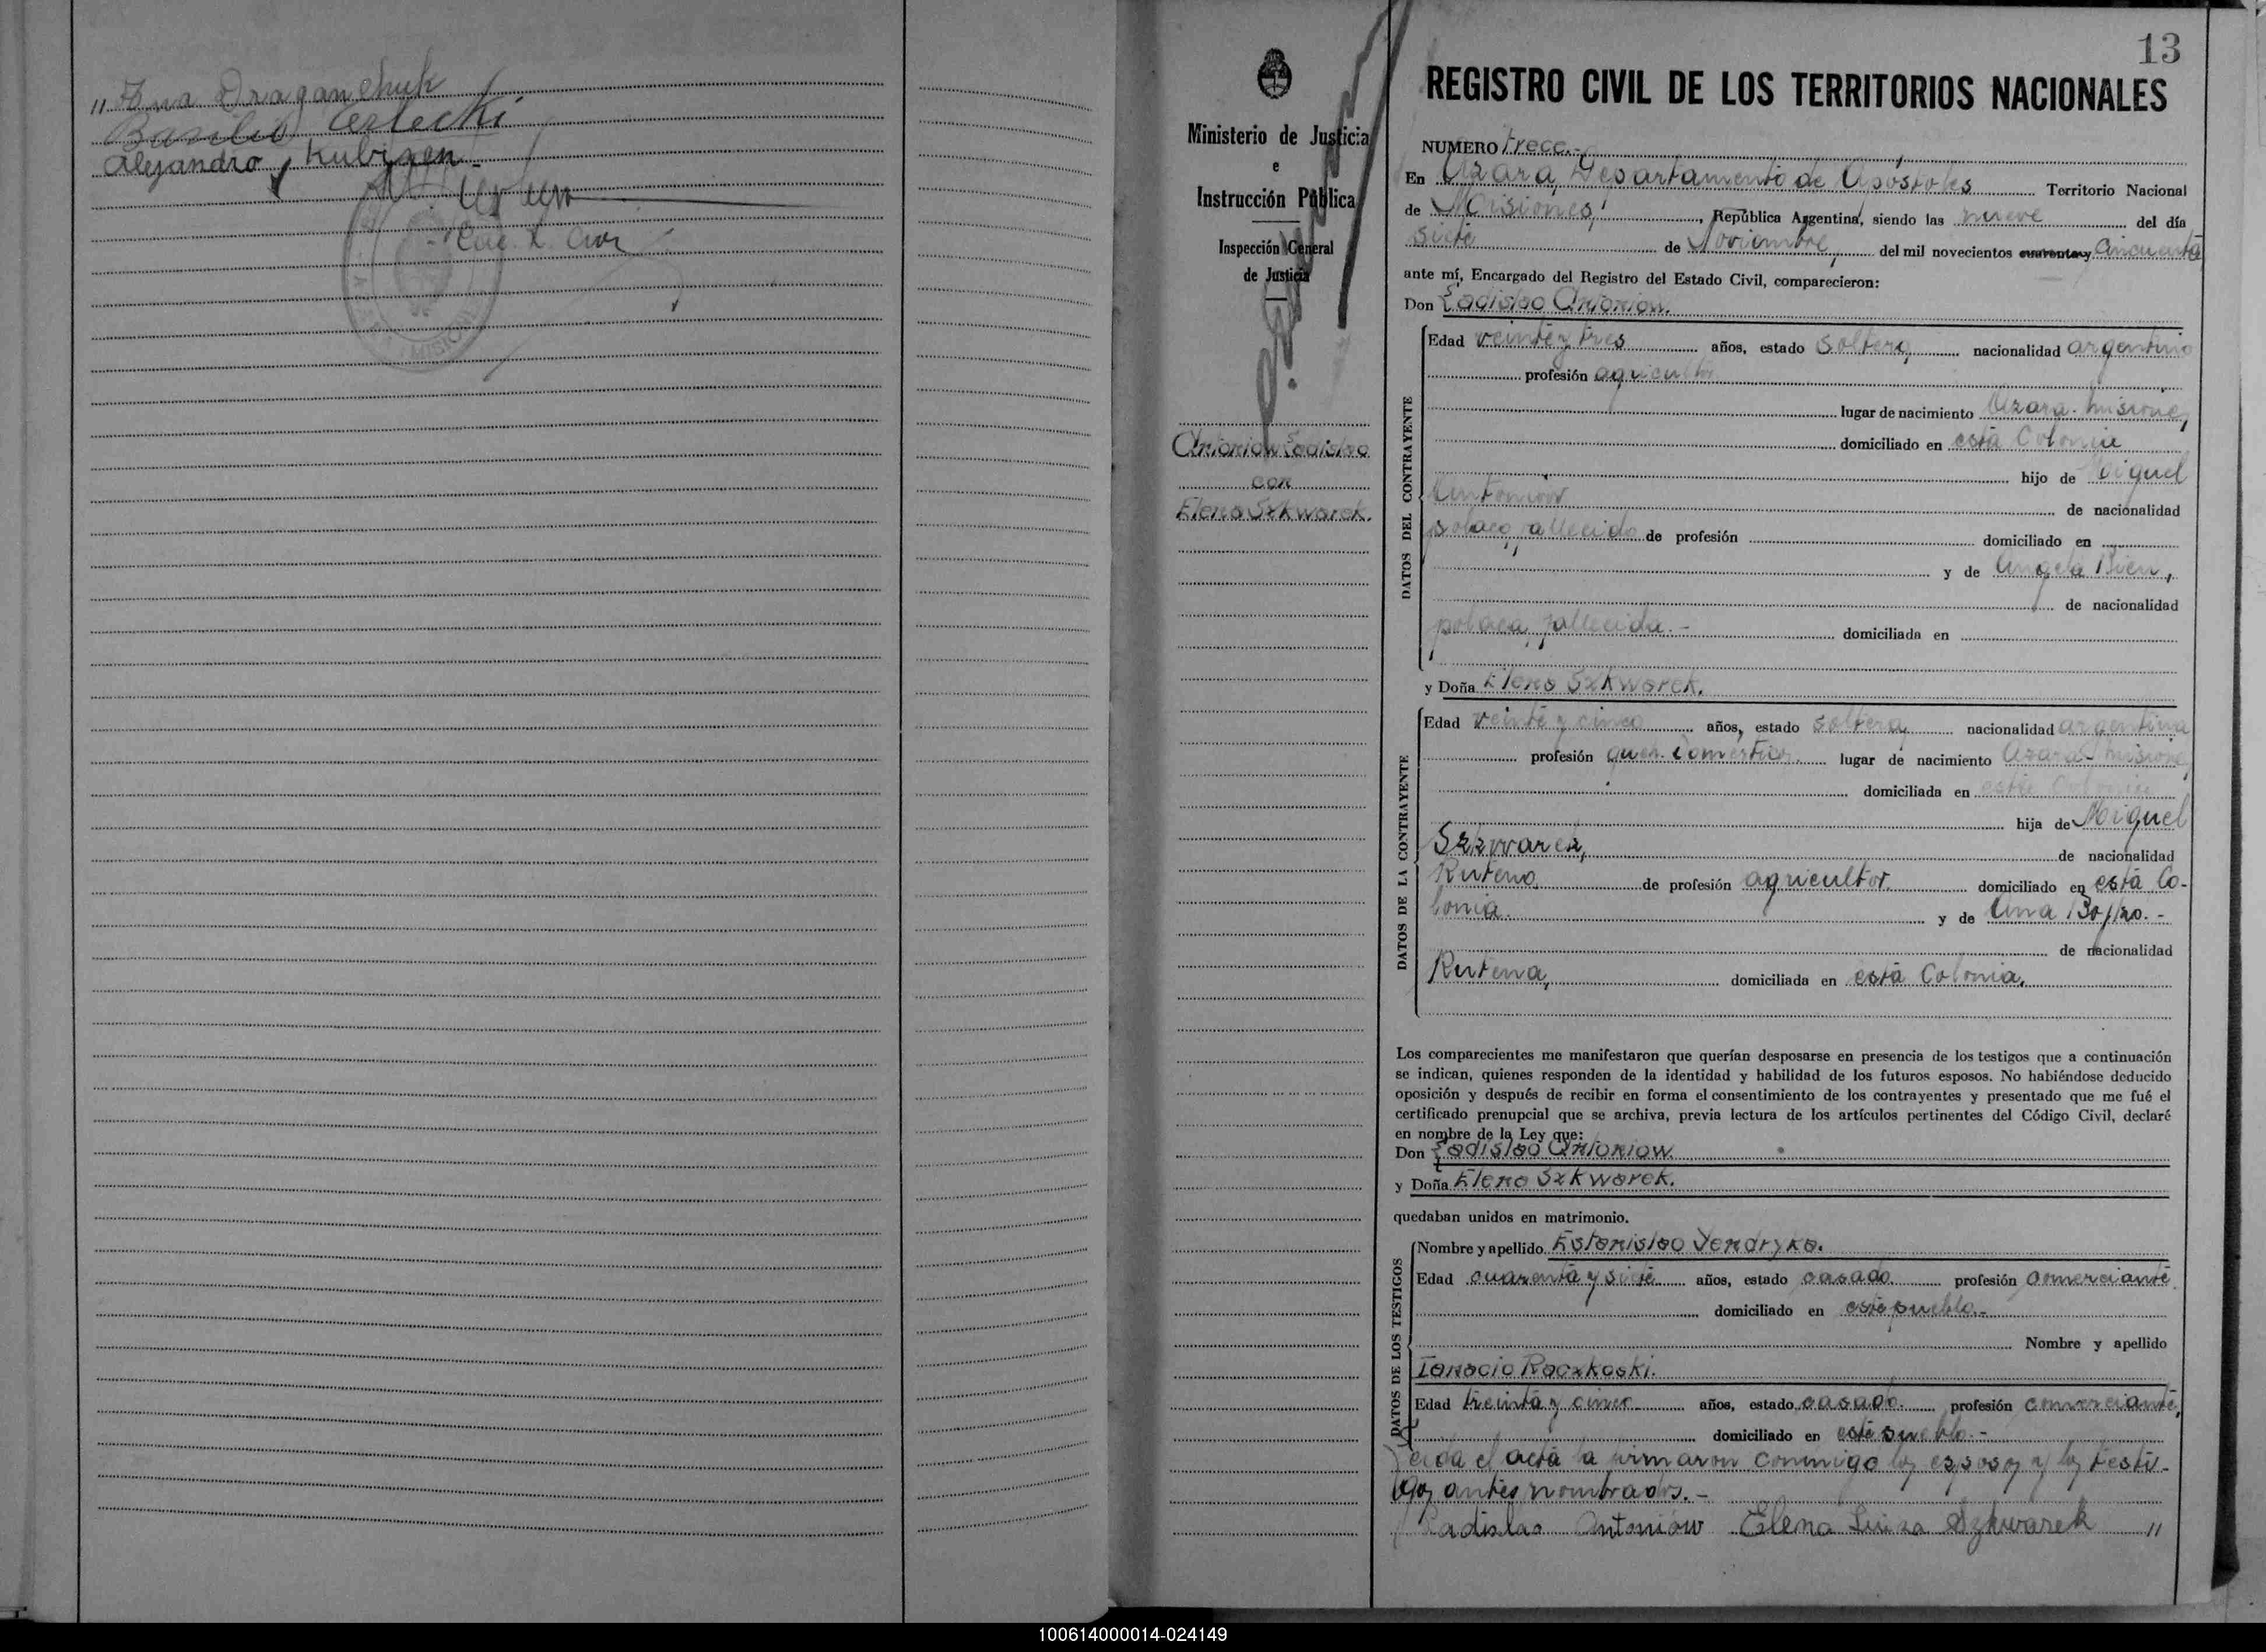 " Ana Draganchuk
Basilio Cestecki
Alejandro Kubiszen
Enc. R. Civil
13
Ministerio de Justicia
e
Instrucción Pública
Inspección General
de Justicia
Antoniow Ladislao
con
Elena Szkwarek.
REGISTRO CIVIL DE LOS TERRITORIOS NACIONALES
NUMERO Trece.-
En Azara, Departamento de Apóstoles Territorio Nacional
de Misiones, República Argentina, siendo las nueve del día
siete de Noviembre, del mil novecientos cuarenta y cincuenta
ante mí, Encargado del Registro del Estado Civil, comparecieron:
Don Ladislao Antoniow.
DATOS DEL CONTRAYENTE
Edad veinte y tres años, estado soltero, nacionalidad argentino
profesión agricultor
lugar de nacimiento Azara-Misiones,
domiciliado en esta Colonia
hijo de Miguel
Antoniow de nacionalidad
polaco, fallecido de profesión domiciliado en
y de Angela Bien,
de nacionalidad
polaca, fallecida.- domiciliada en
y Doña Elena Szkwarek.
DATOS DE LA CONTRAYENTE
Edad veinte y cinco años, estado soltera, nacionalidad argentina
profesión queh. domésticos, lugar de nacimiento Azara-Misiones,
domiciliada en esta Colonia
hija de Miguel
Szkwarek, de nacionalidad
Ruteno de profesión agricultor domiciliado en esta Co-
lonia. y de Ana Bojko.-
de nacionalidad
Rutena, domiciliada en esta Colonia,
Los comparecientes me manifestaron que querían desposarse en presencia de los testigos que a continuación
se indican, quienes responden de la identidad y habilidad de los futuros esposos. No habiéndose deducido
oposición y después de recibir en forma el consentimiento de los contrayentes y presentado que me fué el
certificado prenupcial que se archiva, previa lectura de los artículos pertinentes del Código Civil, declaré
en nombre de la Ley que:
Don Ladislao Antoniow.
y Doña Elena Szkwarek.
quedaban unidos en matrimonio.
DATOS DE LOS TESTIGOS
Nombre y apellido Estanislao Yendryka.
Edad cuarenta y siete años, estado casado profesión comerciante
domiciliado en este pueblo.-
Nombre y apellido
Ignacio Raczkoski.
Edad treinta y cinco años, estado casado. profesión comerciante,
domiciliado en este pueblo.-
Leida el acta la firmaron conmigo los esposos y los testi-
gos antes nombrados.-
Ladislao Antoniów Elena Luisa Szkwarek "
100614000014-024149